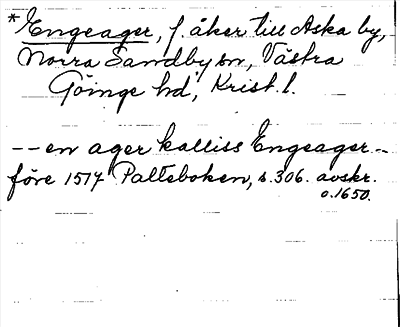 *Engeager, f. åker till Aska by,
Norra Sandby sn, Västra
Göinge hd, Krist. l.
-- en ager kalliss Engeager --
före 1517 Palteboken, s. 306. avskr.
o. 1650.